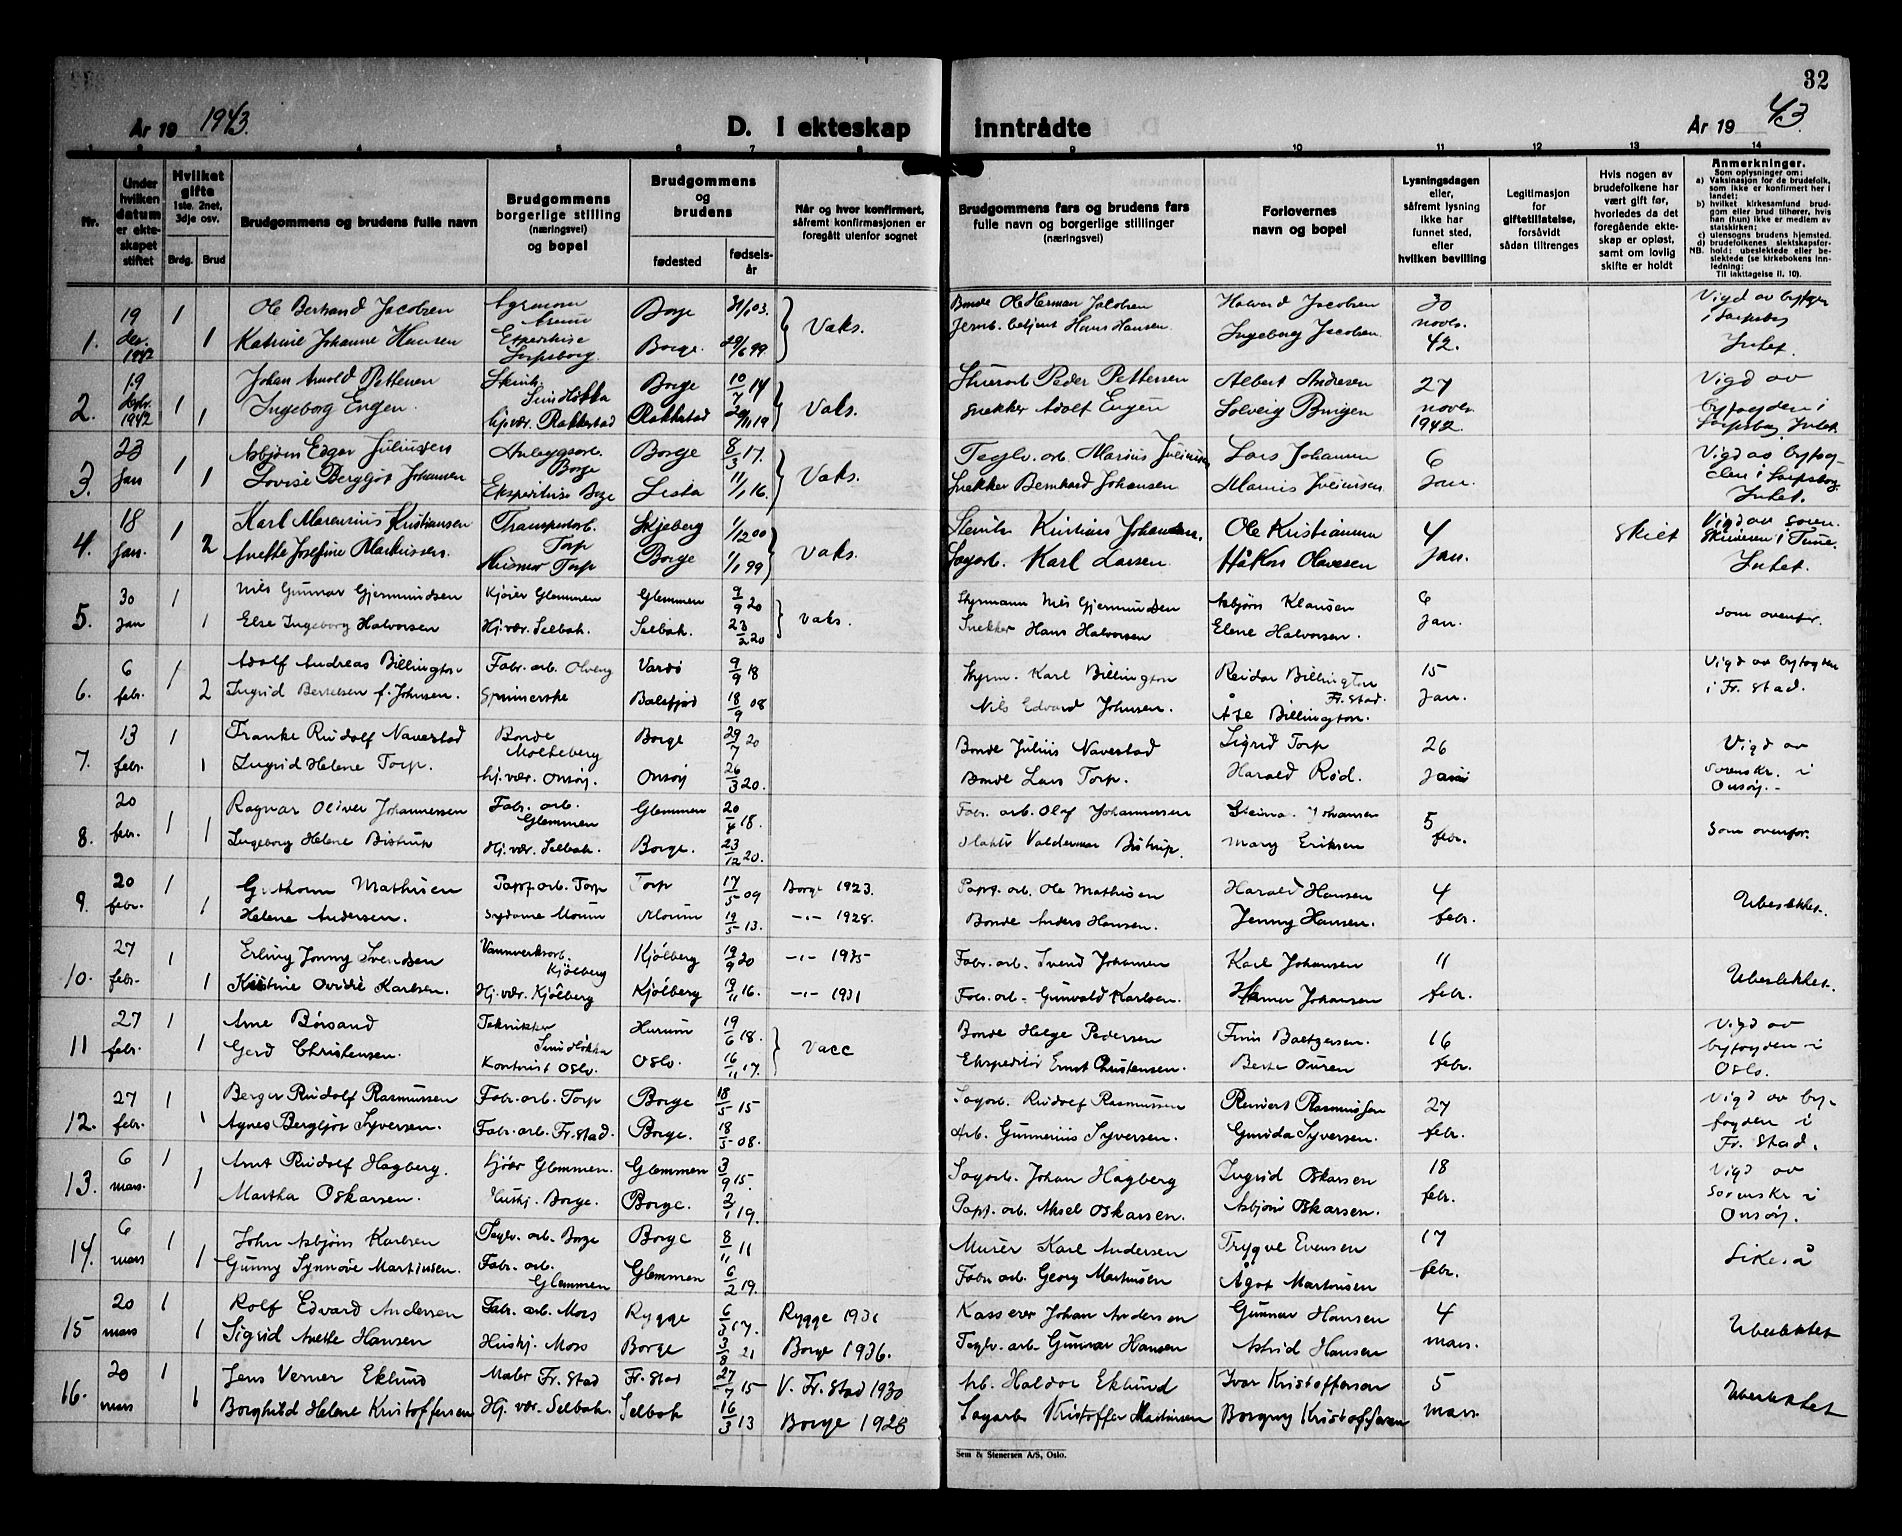 32
År 19 1943.
D. I ekteskap inntrådte
År 19 43.
1 2 3 4 5 6 7 8 9 10 11 12 13 14
Nr.
Under hvilken datum er ekteskapet stiftet
Hvilket gifte 1ste, 2net, 3dje osv.
Brdg. Brud
Brudgommens og brudens fulle navn
Brudgommens borgerlige stilling (næringsvei) og bopel
Brudgommens og brudens
fødested
fødselsår
Når og hvor konfirmert, såfremt konfirmasjonen er foregått utenfor sognet
Brudgommens fars og brudens fars fulle navn og borgerlige stillinger (næringsvei)
Forlovernes navn og bopel
Lysningsdagen eller, såfremt lysning ikke har funnet sted, efter hvilken bevilling
Legitimasjon for giftetillatelse, forsåvidt sådan tiltrenges
Hvis nogen av brudefolkene har vært gift før, hvorledes da det foregående ekteskap er opløst, samt om lovlig skifte er holdt
Anmerkninger.
Som oplysninger om:
a) Vaksinasjon for de brudefolk, som ikke er konfirmert her i landet;
b) hvilket kirkesamfund brudgom eller brud tilhører, hvis han (hun) ikke er medlem av statskirken;
c) utensogns brudens hjemsted.
d) brudefolkenes slektskapsforhold: ubeslektede eller beslektede (se kirkebokens innledning:
NB. Til iakttagelse II. 10).
1. 19 des. 1942 1 Ole Bertrand Jacobsen Agronom Borge 31/1 03. Vaks. Bonde Ole Herman Jacobsen Halvard Jacobsen 30 novb. 42. Vigd av byfogden i Sarpsborg
1 Katrine Johanne Hansen Expertrise Sarpsborg Borge. 29/6 99. Jernb. betjent Hans Hansen Ingeborg Jacobsen Intet.
2. 19 desbr. 1942 1 Johan Arnold Pettersen Borge 10/7 14 Vaks. Peder Pettersen Albert Andresen 27 novb. 1942 Vigd av
1 Ingeborg Engen. hj.vær. Rakkestad Rakkestad 29/11 19 Snekker Adolf Engen Solveig byfogden i Sarpsborg. Intet.
3. 23 Jan 1 Asbjørn Edgar Juliussen Anleggsarb. Borge Borge 8/3 17. Vaks. Teglv. arb. Marius Juliussen Lars Johansen 6 Jan. Vigd av byfog-
1 Lovise Bergljot Johansen Ekspeditrise Borge Lista 11/1 16. Snekker Bernhard Johansen Marius Juliussen den i Sarpsborg. Intet.
4. 18 Jan. 1 Karl Marenius Kristiansen Transportarb. Torp Skjeberg 1/12 00 Vaks. Kristian Johansen. Ole Kristiansen 4 Jan. skilt Vigd av soren-
2 Anette Josefine Markussen. Husmor Torp Borge 1/1 99 Sagarb. Karl Larsen Håkon Olavesen skriveren i Tune. Intet.
5. 30 Jan 1 Nils Gunnar Gjermundsen Kjører Glemmen Glemmen 9/9 20 vaks. Styrmann Nils Gjermundsen Asbjørn Klausen 6 Jan. som ovenfor.
1 Else Ingeborg Halvorsen Hj.vær. Selbak. Selbak. 23/2 20 Snekker Hans Halvorsen Elene Halvorsen.
6. 6 febr. 1 Adolf Andreas Billington Fabr. arb. Vardö 9/9 18 Styrm. Karl Billington Reidar Billington Fr.stad. 15 Jan. Vigd av byfogden
2 Ingrid Bertelsen f. Johnsen. Spinnerske Balsfjord 18/9 08 Nils Edvard Johnsen. Åse Billington. i Fr. stad.
7. 13 febr. 1 Franke Rudolf Navestad Bonde Molteberg Borge 29/7 20 Bonde Julius Navestad Sigrid Torp 26 Jan Vigd av
1 Ingrid Helene Torp. hj.vær. Onsøy. Onsøy 26/3 20. Bonde Lars Torp. Harald Rød. sorenskr. i Onsøy.
8. 20 febr. 1 Ragnar Oliver Johannessen Fabr. arb. Glemmen Glemmen 20/4 18. Fabr. arb. Olaf Johannessen Johansen 5 febr. som ovenfor.
1 Ingeborg Helene Bistrup Hj.vær. Selbak. Borge. 23/12 20. Valdemar Bistrup. Mary Eriksen
9. 20 febr. 1 Guthorm Mathisen Papf. arb. Torp Torp 17/5 09 Borge 1923. Papf. arb. Ole Mathisen Harald Hansen 4 febr. Ubeslektet.
1 Helene Andersen. Sydame Moum Moum 19/5 13. -"- 1928. Bonde Anders Hansen. Jenny Hansen.
10. 27 febr. 1 Erling Jonny Svendsen Vannverksarb. Kjölberg Kjölberg 19/9 20 -"- 1935 Fabr. arb. Svend Johansen Karl Johansen 11 febr. Ubeslektet.
1 Kristine Ovidie Karlsen. Hj.vær. Kjölberg Kjölberg 19/11 16. -"- 1931 Fabr. arb. Gunvald Karlsen. Johansen
11 27 febr. 1 Arne Börsand Tekniker Hurum 19/6 18. Vacc Bonde Helge Pedersen Finn 16 febr. Vigd av
1 Gerd Christensen. Kontorist Oslo. Oslo. 16/11 17. Ekspeditör Ernst Christensen. byfogden i Oslo.
12. 27 febr. 1 Berger Rudolf Rasmussen Fabr. arb. Torp Borge 18/5 15 Sagarb. Rudolf Rasmussen Reinert Rasmussen 27 febr. Vigd av by-
1 Agnes Bergljot Syversen. Fabr. arb. Fr.stad. Borge. 18/5 08. Arb. Gunnerius Syversen. Syversen. fogden i Fr. stad.
13. 6 mars. 1 Arnt Rudolf Hagberg. Kjörer Glemmen. Glemmen 3/9 15. Sagarb. Johan Hagberg Ingrid Oskarsen 18 febr. Vigd av
1 Martha Oskarsen. Hushj. Borge. Borge. 2/1 19. Papf. arb. Aksel Oskarsen. Asbjörn Oskarsen. Sorenskr i Onsøy.
14. 6 mars 1 John Asbjörn Karlsen Teglv. arb. Borge Borge 8/11 11 Murer Karl Andersen Trygve Evensen 17 febr. Likeså
1 Gunny Synnöve Martinsen. Fabr. arb. Glemmen Glemmen 6/2 19. Fabr. arb. Georg Martinsen Ågot Martinsen
15 20 mars 1 Rolf Edvard Andersen Fabr. arb. Moss Rygge 6/3 17. Rygge 1931 Kasserer Johan Andersen Gunnar Hansen 4 mars. Ubeslektet
1 Sigrid Anette Hansen Hushj. Moss Borge 3/8 21 Borge 1936. Teglv. arb. Gunnar Hansen Astrid Hansen
16. 20 mars 1 Jens Verner Eklund Maler Fr. stad Fr. stad 27/7 15 V. Fr. stad 1930 Arb. Haldor Eklund Ivar Kristoffersen 5 mars. Ubeslektet
1 Borghild Helene Kristoffersen Hj. vær. Selbak. Selbak 16/3 13 Borge 1928 Sagarb. Kristoffer Martinsen Borgny Kristoffersen
Sem & Stenersen A/S, Oslo.